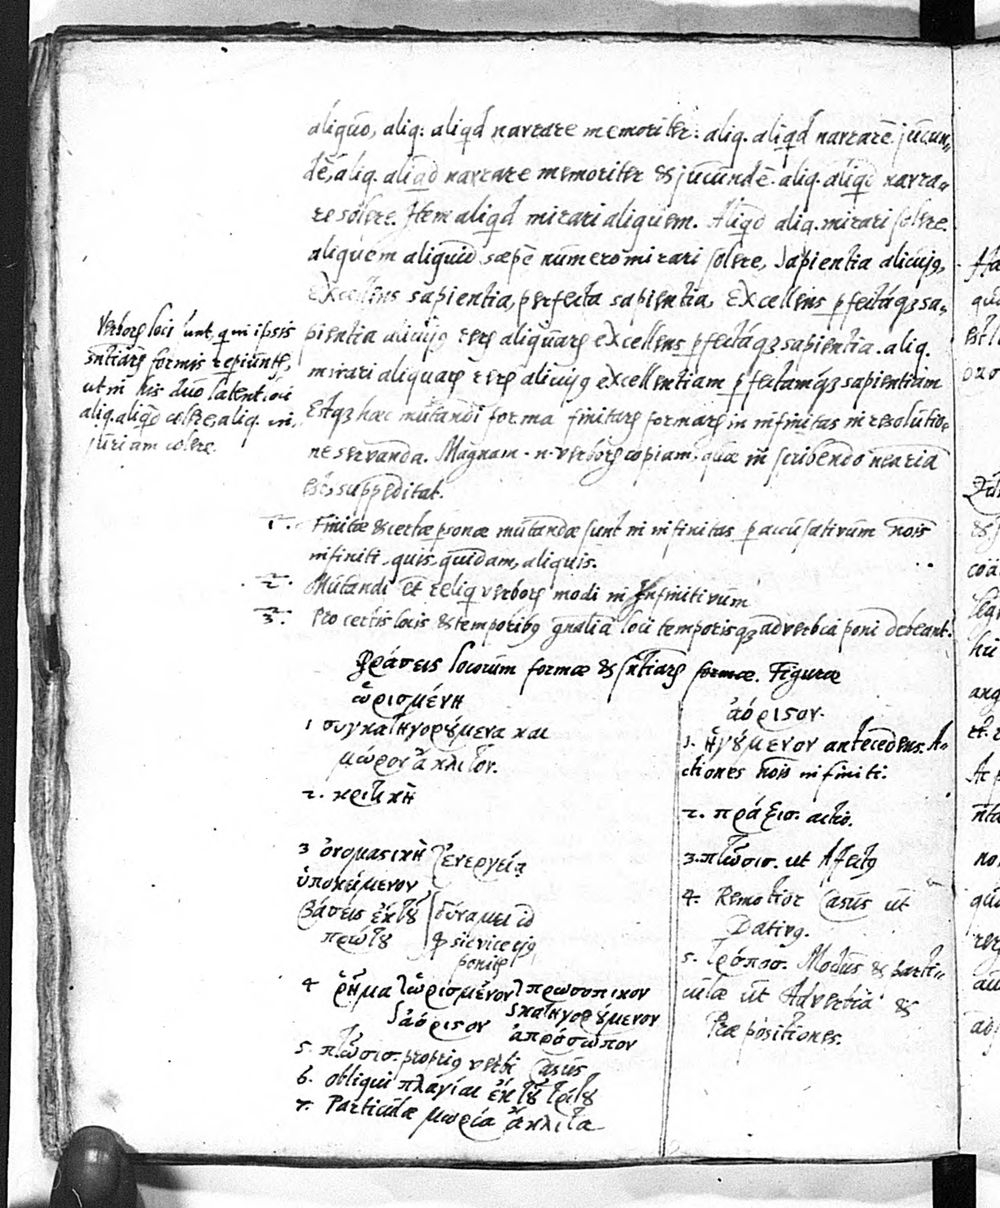 aliquo, aliq: aliqd narrare memoriter: aliq. aliqd narrare jucun„
dē, aliq. aliqd narrare memoriter & jucundē. aliq. aliqd narra„
re solere. Item aliqd mirari aliquem. Aliqd aliq. mirari solere.
aliquem aliquid sæpē numero mirari solere, Sapientia alicujq,
Excellens sapientia, perfecta sapientia, Excellens pfectáqz sa„
pientia alicujq rerꝫ aliquarꝫ excellens pfectáqz sapientia. aliq.
mirari aliquarꝫ rerꝫ alicujq excellentiam pfectamqz sapientiam
Estqz hæc mutandi forma finitarꝫ formarꝫ in infinitas in resolutio„
ne servanda. Magnam .n. verborꝫ copiam, quæ in scribendo n̄earia
est, suppeditat.
Verborꝫ loci sunt, qui ipsis
sntiarꝫ formis repiuntr,
ut in his duo latent loci
aliq. aliqd colere, aliq. in„
juriam colere.
1. Finitæ & certæ psonæ mutandæ sunt in infinitas p accusativum nois
infiniti, quis, quidam, aliquis.
2. Mutandi et reliq verborꝫ modi in Infinitivum
3. Pro certis locis & temporibq gnalia loci temporisqz adverbia poni debeant.
Φράσεις locorum formæ & sntiarꝫ formæ. Figuræ
ὡρισμένη
1 συγκατηγορȣμενα και
μώριον ἄκλιτον.
2. κριτικὴ
3 ὀνομαστικὴ ἐνεργείᾳ
ὑποκείμενον
βάσεις ἐκ τȣ͂ δύναμει id
πρώτȣ q sicvice ejq
ponitr
4 ῥῆμα ὡρισμένον προσωπικον
ἀόριστον κατηγορȣμενον
ἀπρόσωπον
5. πτῶσισ. propriq verbi Casus
6. obliqui πλαγίαι ἐκ τȣ͂ τρίτȣ
7. Particulæ μωρία ἄκλιτα
ἀόριστον.
1. Ἡγȣ́μενον antecedens. A„
ctiones nois infiniti.
2. πρᾶξισ. actio.
3. πτῶσισ. ut Afectq
4. Remotior Casus ut
Dativq.
5. Τρόποσ. Modus & parti„
culæ ut Adverbia &
Præpositiones.